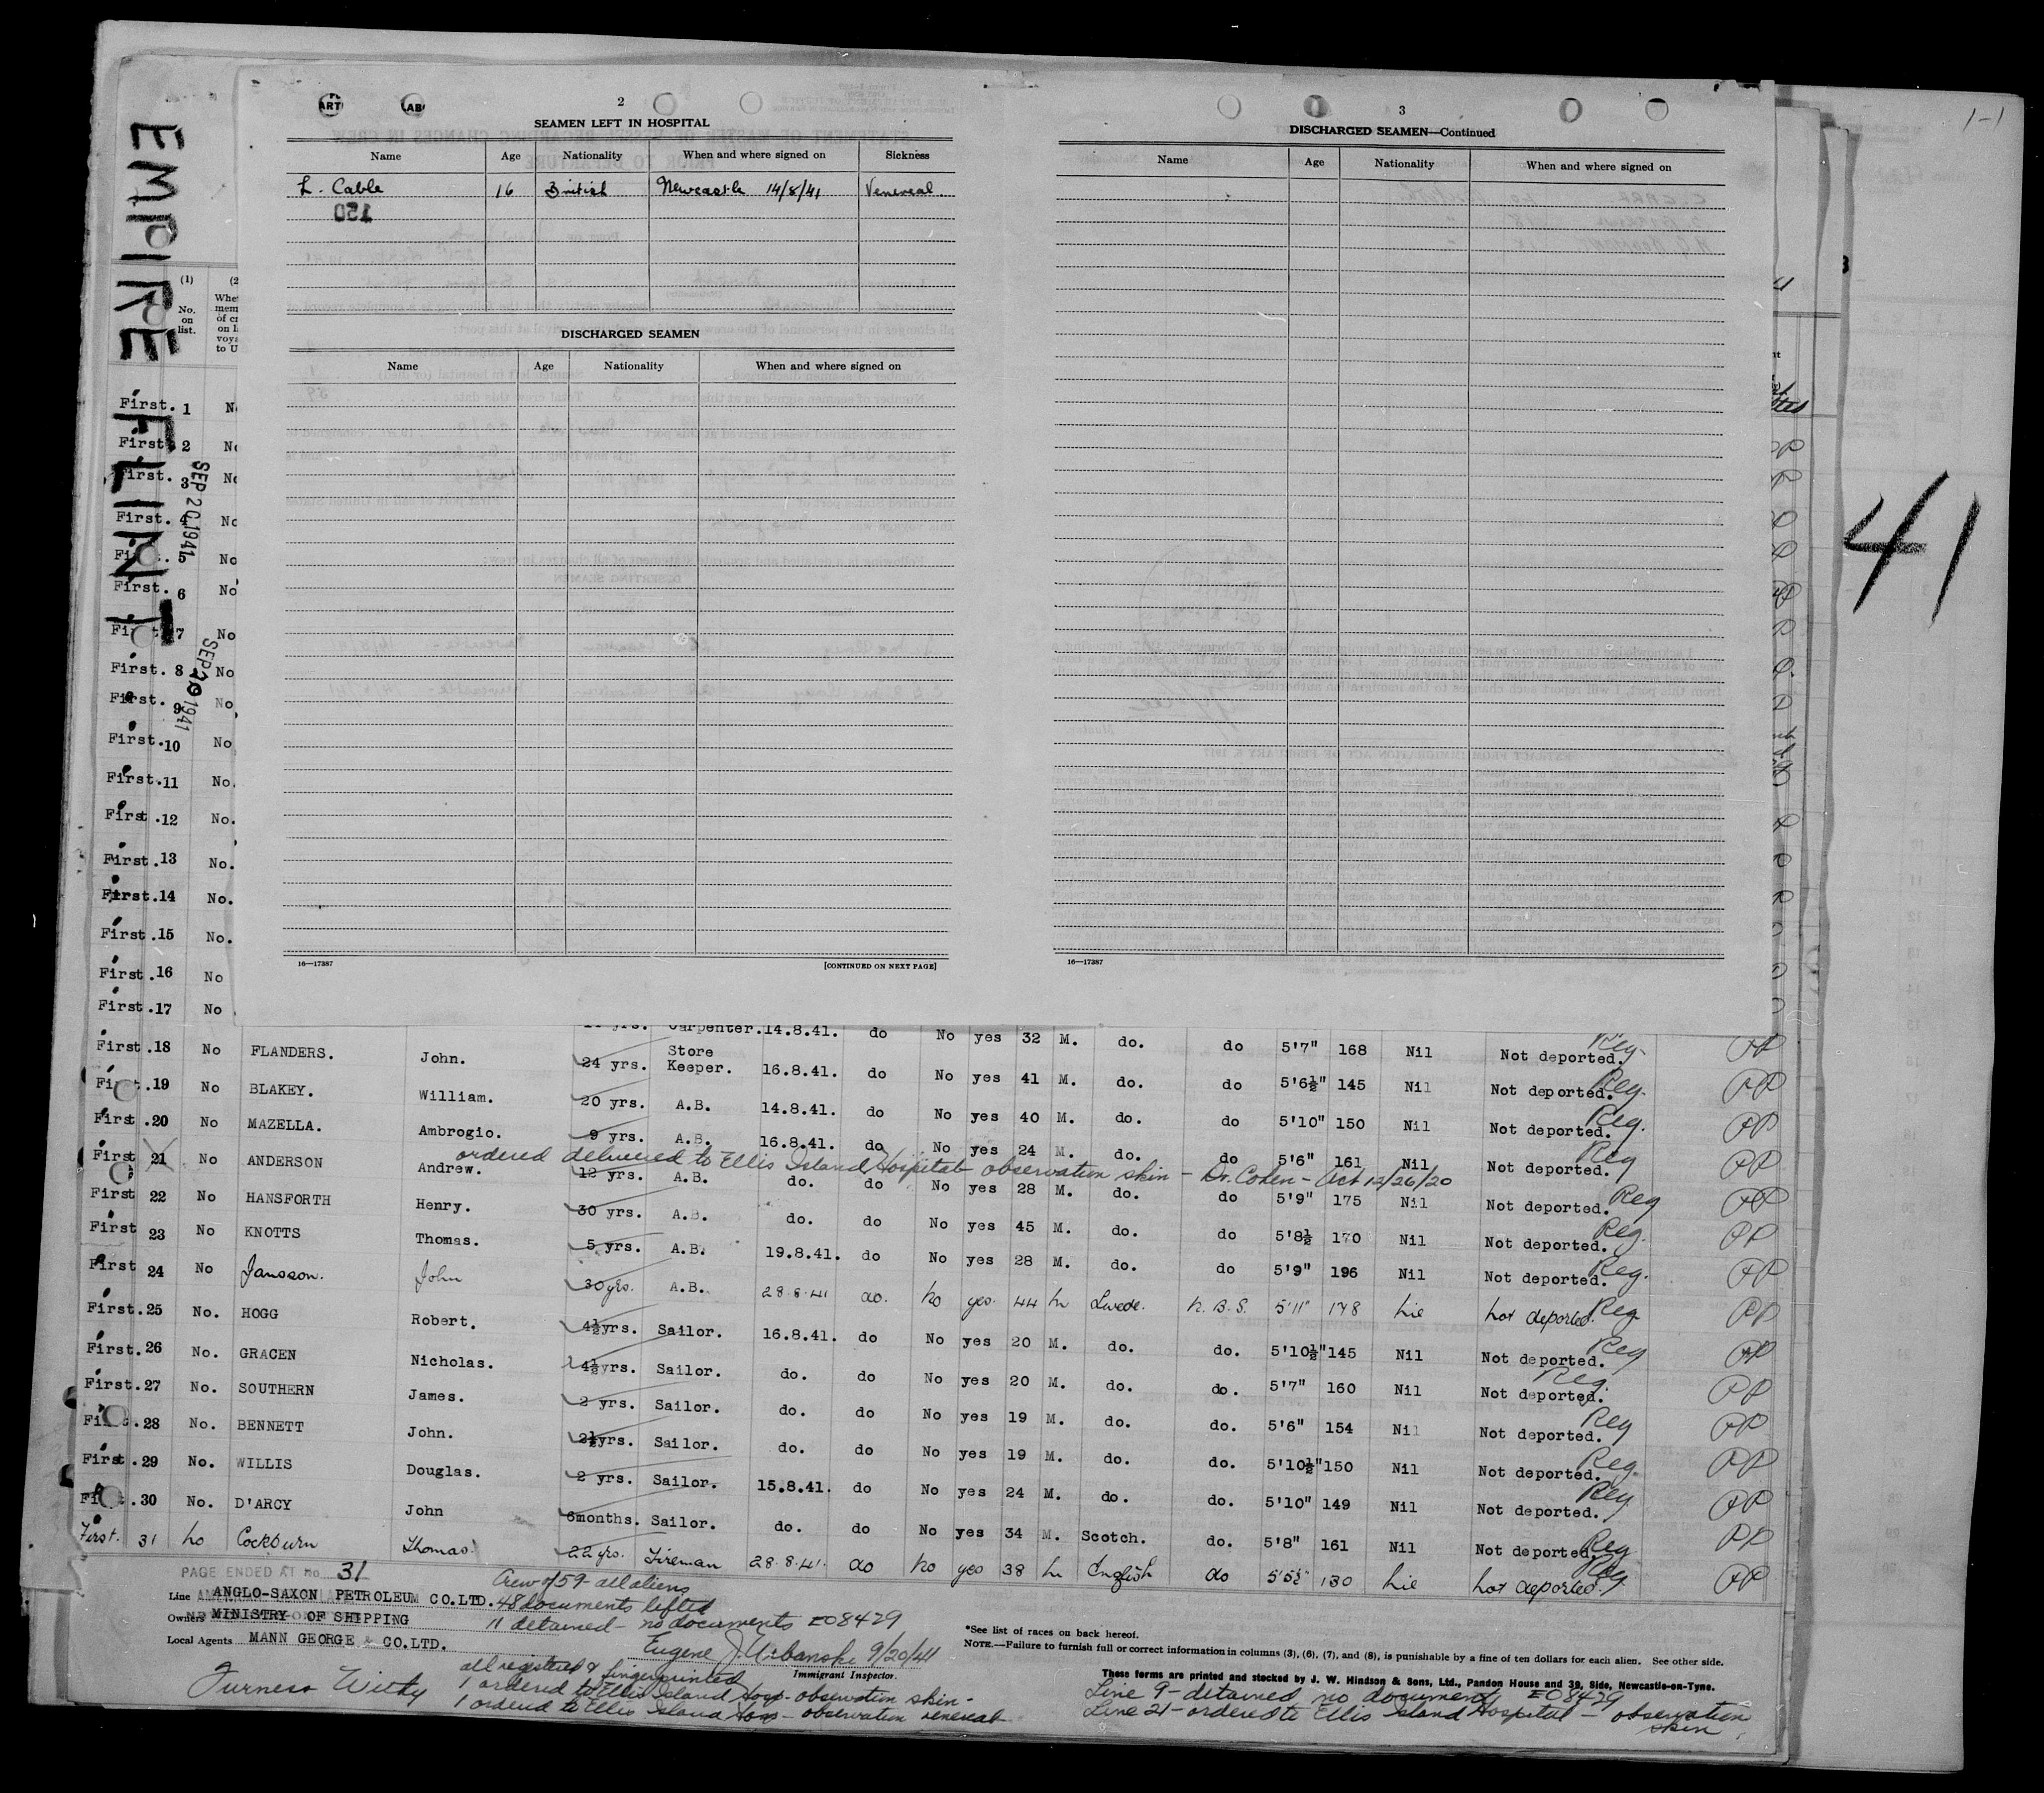 EMPIRE FLINT
SEP 20 1941
SEP 20 1941
41
1-1
ART AB
2
SEAMEN LEFT IN HOSPITAL
Name Age Nationality When and where signed on Sickness
L. Cable 16 British Newcastle 14/8/41 Venereal
150
DISCHARGED SEAMEN
Name Age Nationality When and where signed on
16—17387 [CONTINUED ON NEXT PAGE]
3
DISCHARGED SEAMEN—Continued
Name Age Nationality When and where signed on
16—17387
(1)
No. on list.
First. 1 No
First. 2 No
First. 3 No
First. 4 No
5 No
First. 6 No
7 No
First. 8 No
First. 9 No
First. 10 No
First. 11 No.
First. 12 No.
First. 13 No.
First. 14 No.
First. 15 No.
First. 16 No
First. 17 No
Carpenter. 14.8.41. do No yes 32 M. do. do 5'7" 168 Nil Not deported. Reg.
First. 18 No FLANDERS. John. 24 yrs. Store Keeper. 16.8.41. do No yes 41 M. do. do 5'6½" 145 Nil Not deported. Reg.
First. 19 No BLAKEY. William. 20 yrs. A.B. 14.8.41. do No yes 40 M. do. do 5'10" 150 Nil Not deported. Reg.
First. 20 No MAZELLA. Ambrogio. 9 yrs. A.B. 16.8.41. do No yes 24 M. do. do 5'6" 161 Nil Not deported. Reg
ordered delivered to Ellis Island Hospital observation skin - Dr. Cohen - Act 12/26/20
First 21 No ANDERSON Andrew. 12 yrs. A.B. do. do No yes 28 M. do. do 5'9" 175 Nil Not deported. Reg
First 22 No HANSFORTH Henry. 30 yrs. A.B. do. do No yes 45 M. do. do 5'8½ 170 Nil Not deported. Reg.
First 23 No KNOTTS Thomas. 5 yrs. A.B. 19.8.41. do No yes 28 M. do. do 5'9" 196 Nil Not deported. Reg.
First 24 No Jansson. John 30 yrs. A.B. 28.8.41 do. No yes. 44 M Swede. N.B.S. 5'11" 178 Nil Not deported. Reg
First. 25 No. HOGG Robert. 4½yrs. Sailor. 16.8.41. do No yes 20 M. do. do. 5'10½" 145 Nil Not deported. Reg
First. 26 No. GRACEN Nicholas. 4½yrs. Sailor. do. do No yes 20 M. do. do. 5'7" 160 Nil Not deported. Reg.
First. 27 No. SOUTHERN James. 2 yrs. Sailor. do. do No yes 19 M. do. do. 5'6" 154 Nil Not deported. Reg
28 No. BENNETT John. 2½yrs. Sailor. do. do No yes 19 M. do. do. 5'10½" 150 Nil Not deported. Reg.
First. 29 No. WILLIS Douglas. 2 yrs. Sailor. 15.8.41. do No yes 24 M. do. do. 5'10" 149 Nil Not deported. Reg
30 No. D'ARCY John 6months. Sailor. do. do No yes 34 M. Scotch. do. 5'8" 161 Nil Not deported. Reg
First. 31 No Cockburn Thomas. 22 yrs. Fireman 28.8.41. do No yes 38 M English do 5'5½" 130 Nil Not deported. Reg
PAGE ENDED AT no 31
Line ANGLO-SAXON PETROLEUM CO.LTD.
Owners MINISTRY OF SHIPPING
Local Agents MANN GEORGE & CO.LTD.
Furness Withy
Crew of 59 - all aliens
48 documents lifted
11 detained - no documents E08429
Eugene J. Urbanski 9/20/41
Immigrant Inspector.
all registered & fingerprinted
1 ordered to Ellis Island Hosp - observation skin -
1 ordered to Ellis Island Hosp - observation venereal
*See list of races on back hereof.
NOTE.—Failure to furnish full or correct information in columns (3), (6), (7), and (8), is punishable by a fine of ten dollars for each alien. See other side.
These forms are printed and stocked by J. W. Hindson & Sons, Ltd., Pandon House and 39, Side, Newcastle-on-Tyne.
Line 9 - detained no documents E08429
Line 21 - ordered to Ellis Island Hospital - observation
skin